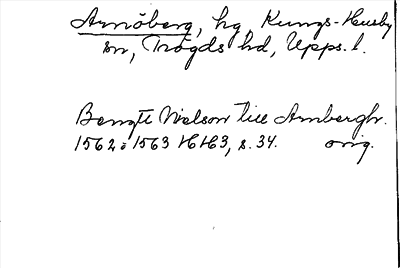 Arnöberg, hg, Kungs-Husby
sn, Trögds hd, Upps. l.
Bengtt Nielson till Arnbergh.
1562 o 1563 HH3, s. 34. orig.